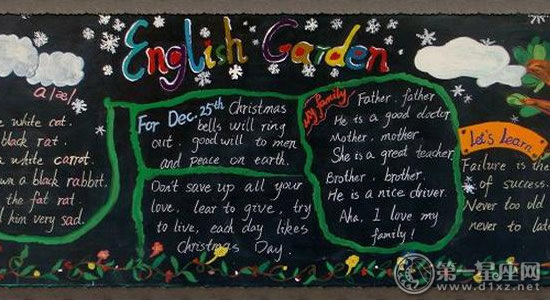 English Garden
a /æ/
e white cat.
black rat.
a white carrot.
wn a black rabbit.
the fat rat.
I him very sad.
For Dec. 25th Christmas
bells will ring
out. good will to men
and peace on earth.
Don't save up all your
love, lear to give, try
to live, each day likes
Christmas Day.
My family
Father. father
He is a good doctor
Mother. mother.
She is a great teacher
Brother. brother.
He is a nice driver.
Aha. I love my
family!
Let's Learn
Failure is the
of success.
Never too old
never to late
第一星座网
www.d1xz.net